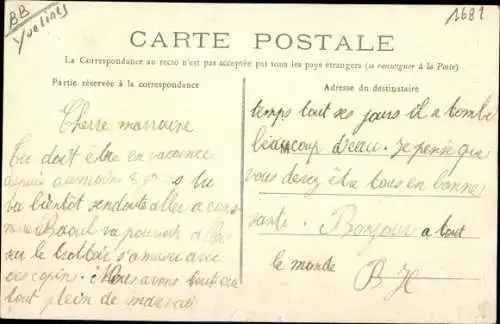 BB
Yvelines
1682
CARTE POSTALE
La Correspondance au recto n'est pas acceptée par tous les pays étrangers (se renseigner à la Poste)
Partie réservée à la correspondance
Adresse du destinataire
Cherre marraine
Tu doit être en vacance
depuis au moins 8 tu
va bientôt sendoute aller a
Raoul va pouvoir aller
sur le trottoir s'amuser avec
ces copins. Nous avons tout
tout plein de mauvai
temps tout ses jours il a tombé
beaucoup d'eau. Je pense que
vous devez être tous en bonne
santé. Bonjour a tout
le monde
B H